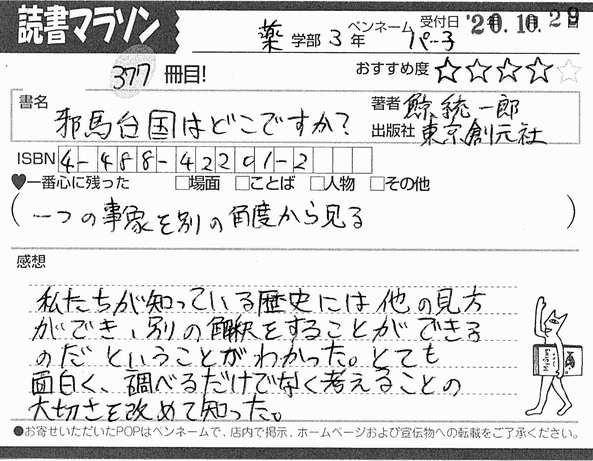 読書マラソン
薬 学部 3 年 ペンネーム パー子 受付日 '20.10.29
377 冊目! おすすめ度 ☆☆☆☆☆
書名 邪馬台国はどこですか? 著者 鯨統一郎
出版社 東京創元社
ISBN 4-488-42201-2
♥一番心に残った □場面 □ことば □人物 □その他
(一つの事象を別の角度から見る)
感想
私たちが知っている歴史には他の見方
ができ、別の解釈をすることができる
のだということがわかった。とても
面白く、調べるだけでなく考えることの
大切さを改めて知った。
●お寄せいただいたPOPはペンネームで、店内で掲示、ホームページおよび宣伝物への転載をご了承ください。